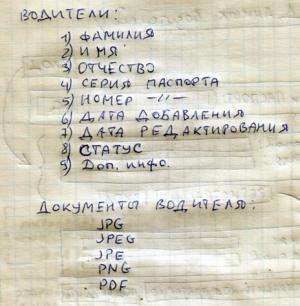 ВОДИТЕЛИ:
1) ФАМИЛИЯ
2) ИМЯ
3) ОТЧЕСТВО
4) СЕРИЯ ПАСПОРТА
5) НОМЕР -//-
6) ДАТА ДОБАВЛЕНИЯ
7) ДАТА РЕДАКТИРОВАНИЯ
8) СТАТУС
9) ДОП. ИНФО.
ДОКУМЕНТЫ ВОДИТЕЛЯ:
JPG
JPEG
JPE
PNG
PDF